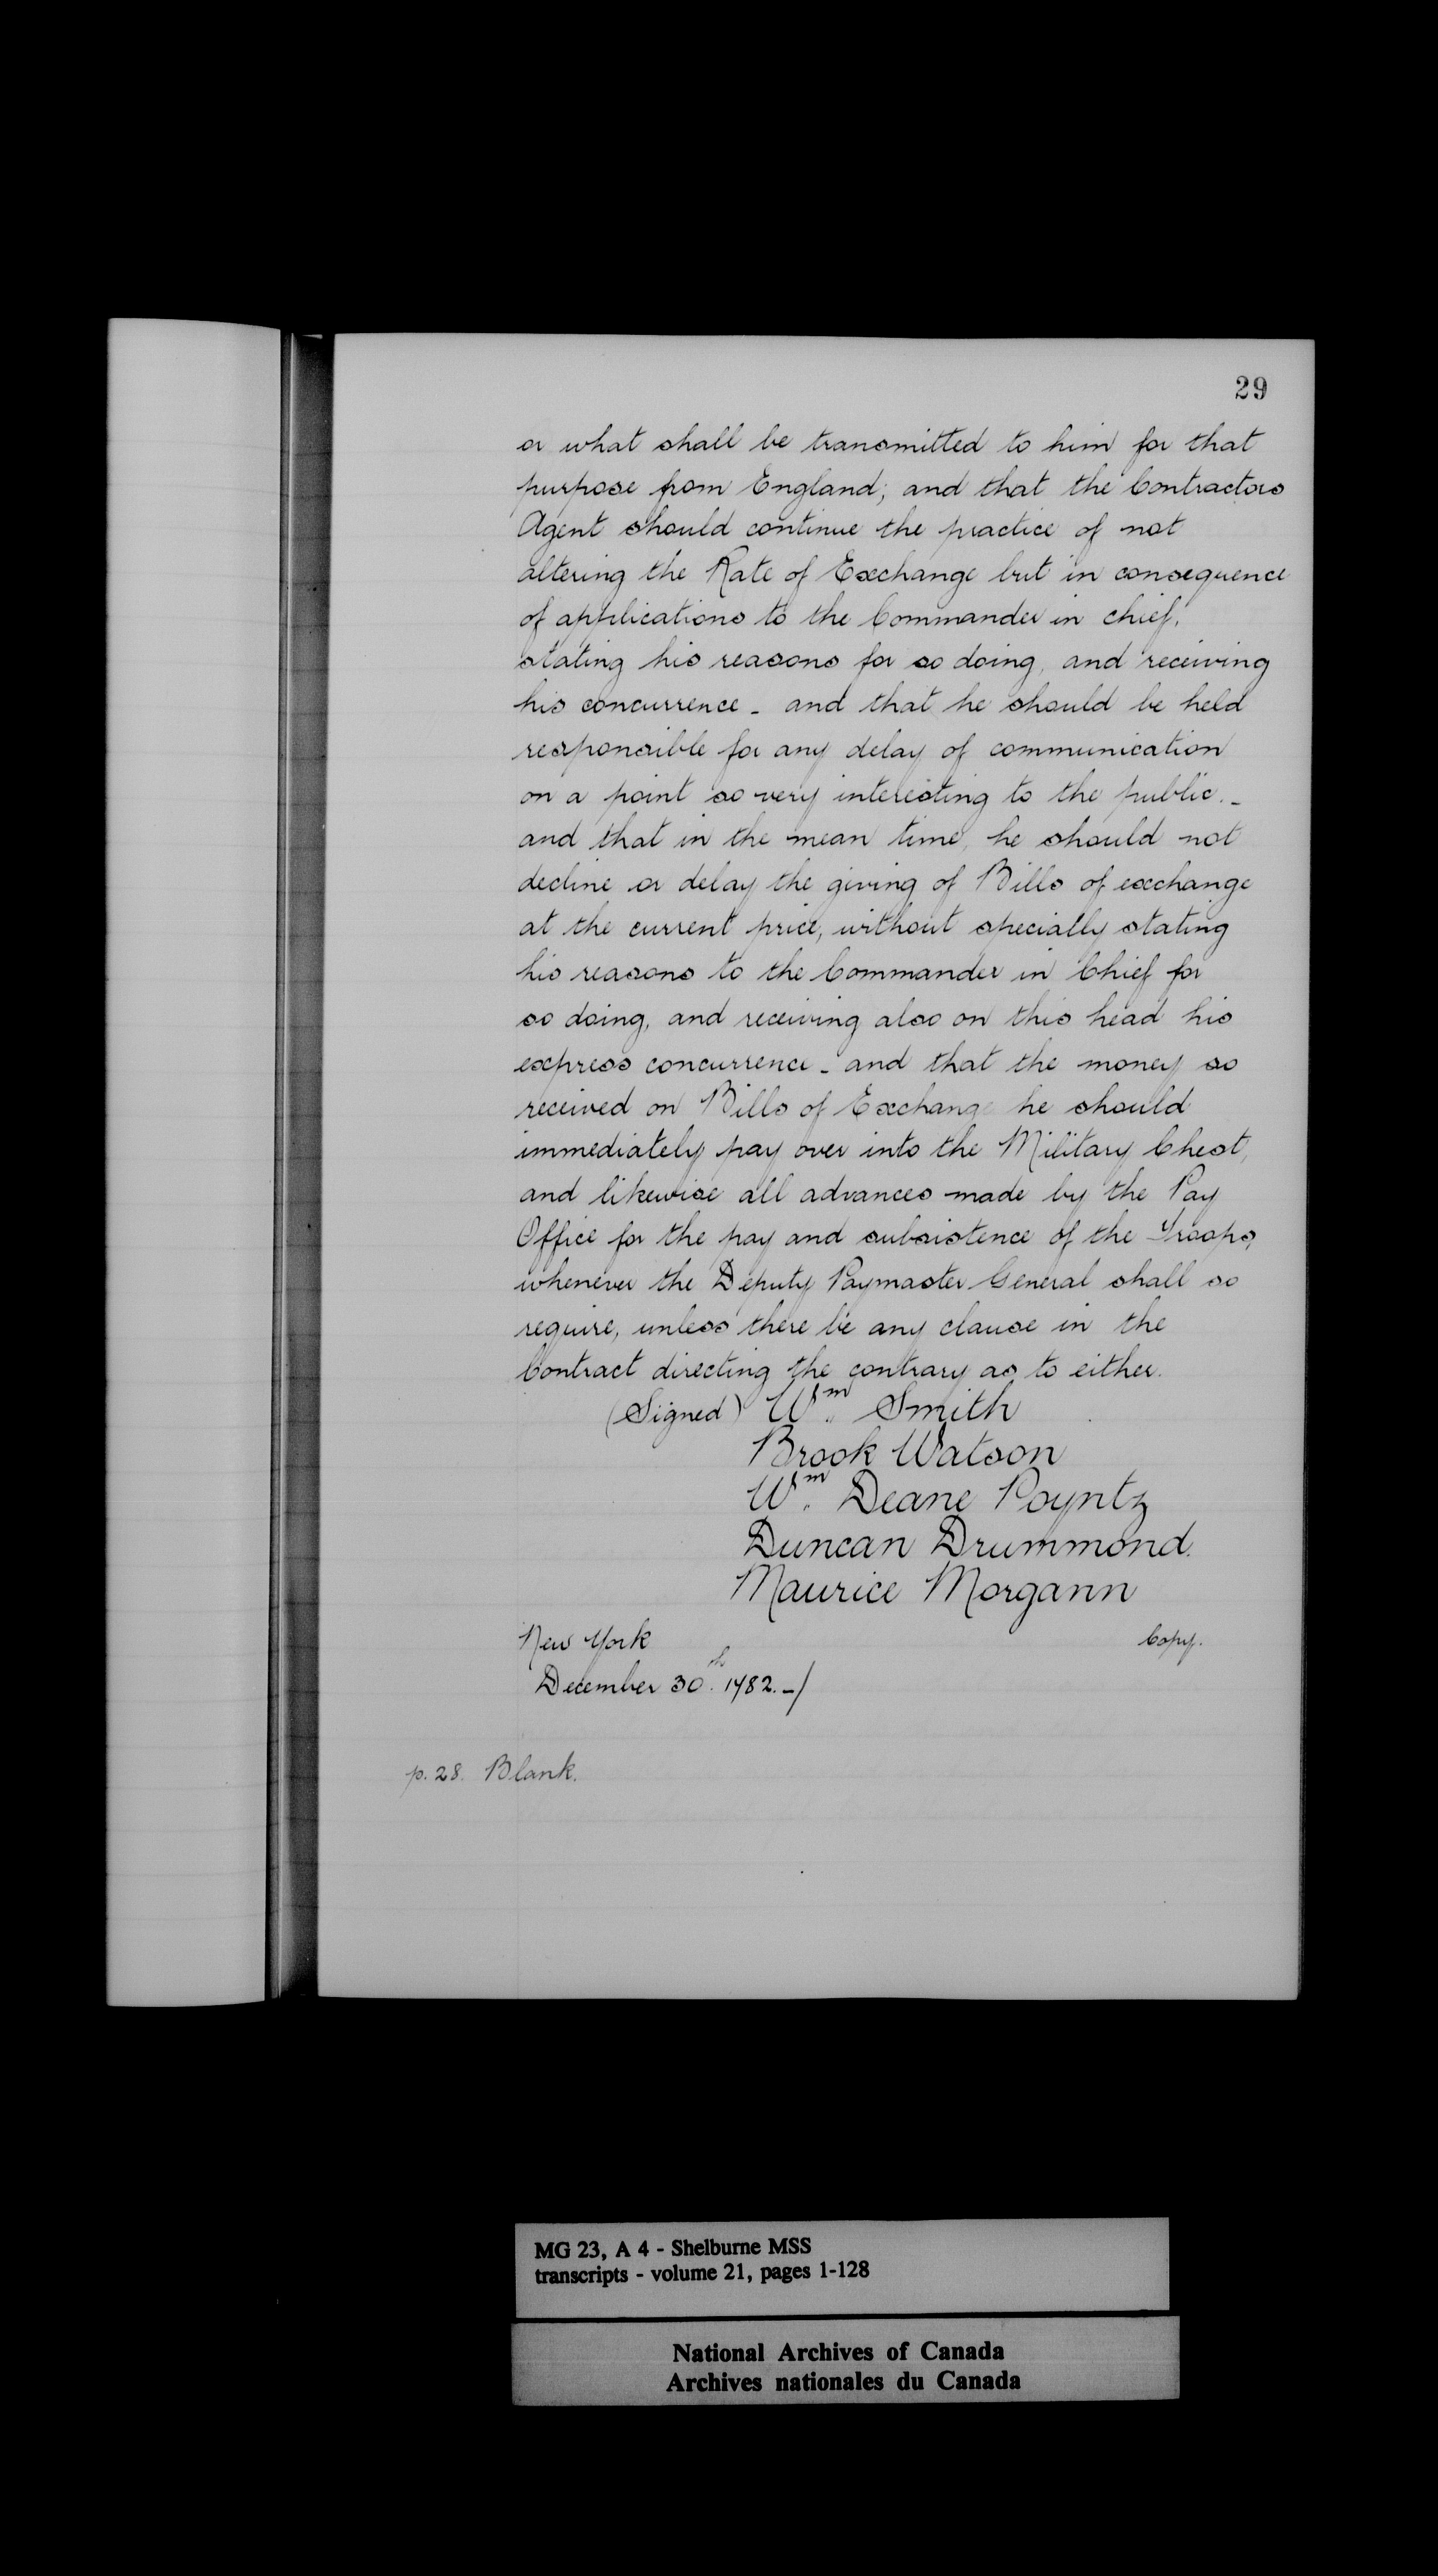 29
or what shall be transmitted to him for that
purpose from England; and that the Contractors
Agent should continue the practice of not
altering the Rate of Exchange but in consequence
of applications to the Commander in chief,
stating his reasons for so doing, and receiving
his concurrence - and that he should be held
responsible for any delay of communication
on a point so very interesting to the public. -
and that in the mean time, he should not
decline or delay the giving of Bills of exchange
at the current price, without specially stating
his reasons to the Commander in Chief for
so doing, and receiving also on this head his
express concurrence - and that the money so
received on Bills of Exchange he should
immediately pay over into the Military Chest,
and likewise all advances made by the Pay
Office for the pay and subsistence of the Troops,
whenever the Deputy Paymaster General shall so
require, unless there be any clause in the
Contract directing the contrary as to either.
(Signed) Wm. Smith
Brook Watson
Wm. Deane Poyntz
Duncan Drummond.
Maurice Morgann
New York Copy.
December 30th. 1782. -/
p. 28. Blank.
MG 23, A 4 - Shelburne MSS
transcripts - volume 21, pages 1-128
National Archives of Canada
Archives nationales du Canada